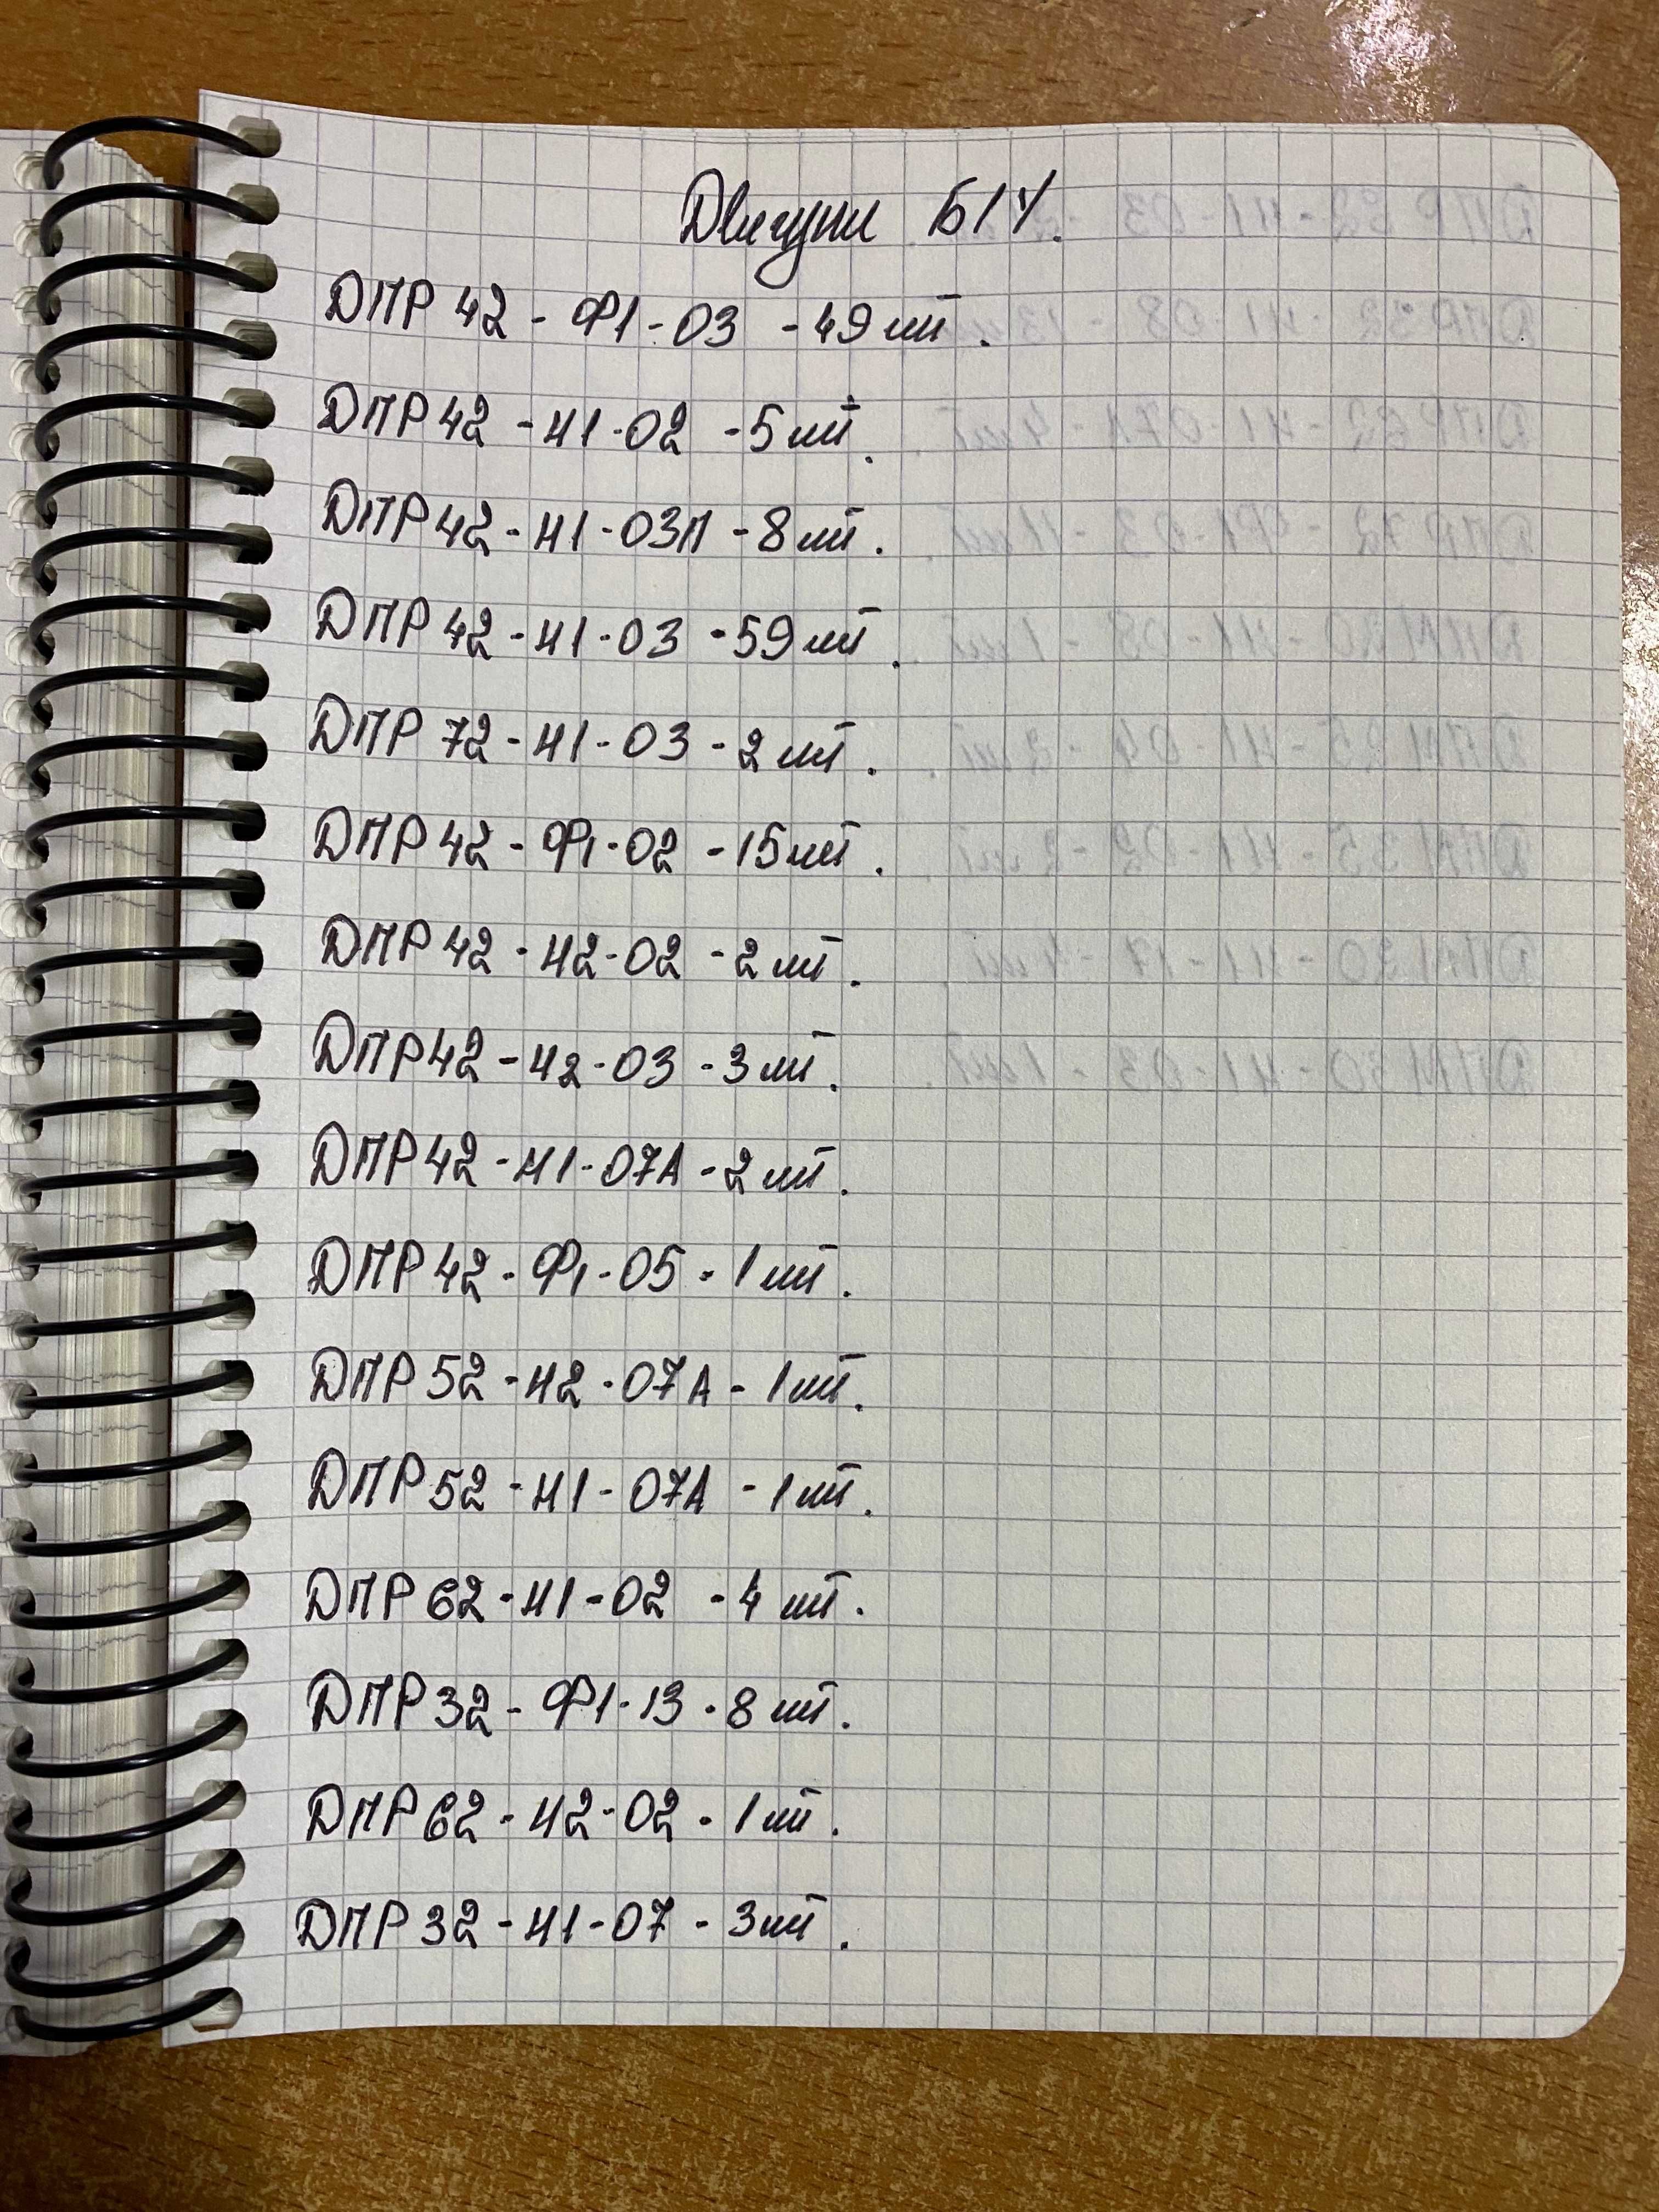 Двигуни Б/У.
ДПР 42 - Ф1 - 03 - 49 шт.
ДПР 42 - Н1 - 02 - 5 шт.
ДПР 42 - Н1 - 03П - 8 шт.
ДПР 42 - Н1 - 03 - 59 шт.
ДПР 72 - Н1 - 03 - 2 шт.
ДПР 42 - Ф1 - 02 - 15 шт.
ДПР 42 - Н2 - 02 - 2 шт.
ДПР 42 - Н2 - 03 - 3 шт.
ДПР 42 - Н1 - 07А - 2 шт.
ДПР 42 - Ф1 - 05 - 1 шт.
ДПР 52 - Н2 - 07А - 1 шт.
ДПР 52 - Н1 - 07А - 1 шт.
ДПР 62 - Н1 - 02 - 4 шт.
ДПР 32 - Ф1 - 13 - 8 шт.
ДПР 62 - Н2 - 02 - 1 шт.
ДПР 32 - Н1 - 07 - 3 шт.